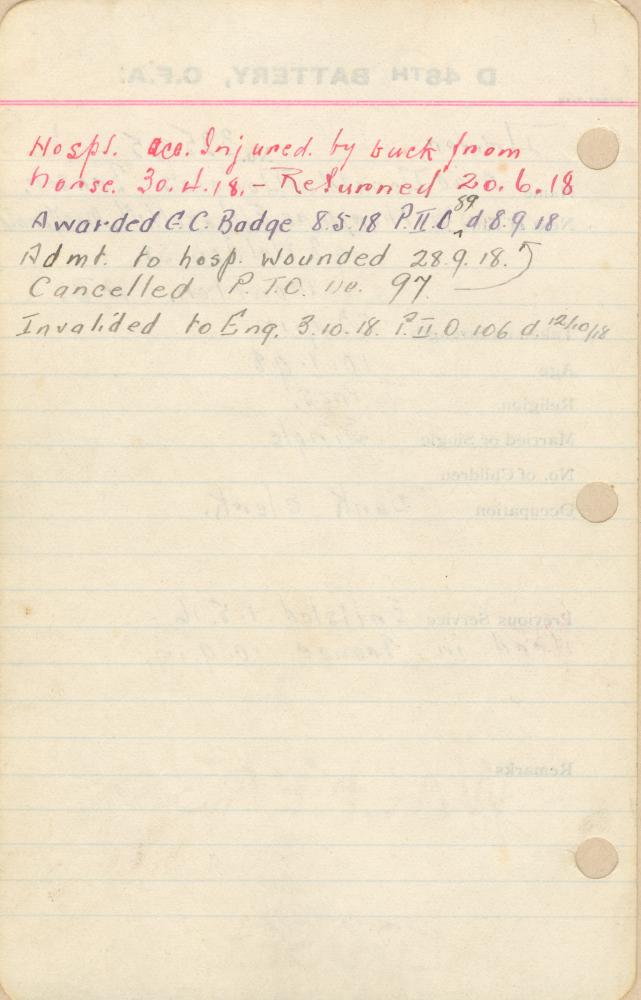 Hospl. acc. Injured. by buck from
horse. 30.4.18. - Returned 20.6.18
Awarded G.C. Badge 8.5.18 P.II.O 89 d 8.9 18
Admt. to hosp. wounded 28.9.18.
Cancelled P.T.O. 97
Invalided to Eng. 3.10.18. P.II.O 106 d. 12/10/18
D 48TH BATTERY, C.F.A.
Age
Religion
Married or Single Single
No. of Children
Occupation Bank Clerk.
Previous Service Enlisted
Remarks